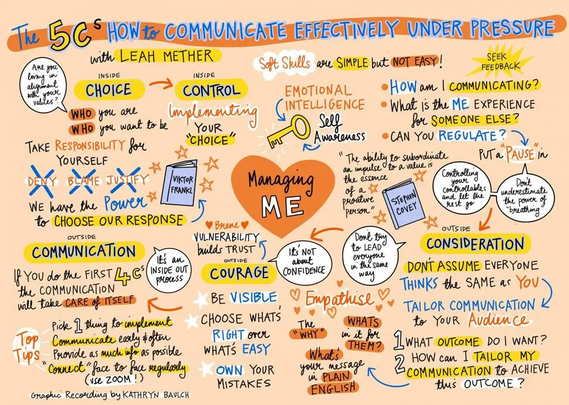 The 5Cs HOW to COMMUNICATE EFFECTIVELY UNDER PRESSURE
with LEAH METHER
Soft Skills are SIMPLE but NOT EASY!
SEEK
FEEDBACK
Are you
living in
alignment
with your
values?
INSIDE
CHOICE
WHO you are
WHO you want to be
TAKE RESPONSIBILITY for
YOURSELF
DENY BLAME JUSTIFY
WE have the Power
to CHOOSE OUR RESPONSE
INSIDE
CONTROL
Implementing
YOUR
"CHOICE"
VIKTOR
FRANKL
EMOTIONAL
INTELLIGENCE
Self
Awareness
• HOW am I COMMUNICATING?
• What is the ME EXPERIENCE
for SOMEONE ELSE?
• CAN YOU REGULATE?
PUT a "PAUSE" in
Managing
ME
"The ability to subordinate
an impulse to a value is
the essence
of a
proactive
person."
STEPHEN
COVEY
Controlling
your
controllables
and let the
rest go
Don't
underestimate
the power of
breathing
OUTSIDE
COMMUNICATION
IF YOU do the FIRST 4C's
the COMMUNICATION
will take CARE of ITSELF
It's an
INSIDE OUT
process
Top
Tips
Pick 1 thing to implement
Communicate early & often
Provide as much info as possible
"Connect" face to face regularly
(use ZOOM!)
Brene
VULNERABILITY
builds TRUST
OUTSIDE
COURAGE
BE VISIBLE
CHOOSE WHAT'S
RIGHT over
WHAT'S EASY
OWN YOUR
MISTAKES
It's not
about
CONFIDENCE
Don't try
to LEAD
everyone
in the same
way
Empathise
The
"WHY"
WHAT'S
in it for
THEM?
What's
your message
in PLAIN
ENGLISH
OUTSIDE
CONSIDERATION
DON'T ASSUME EVERYONE
THINKS the SAME as YOU
TAILOR COMMUNICATION
to YOUR Audience
1 WHAT OUTCOME DO I WANT?
2 HOW can I TAILOR MY
COMMUNICATION to ACHIEVE
this OUTCOME?
Graphic Recording by KATHRYN BAULCH